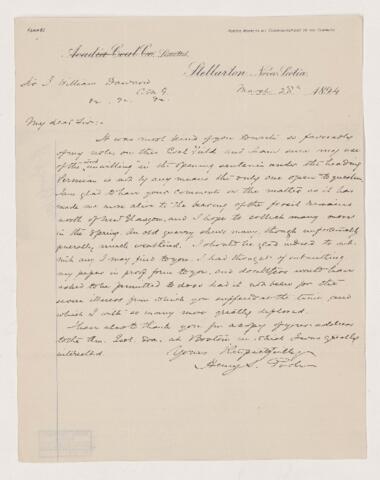 Acadia Coal Co. Limited.
Stellarton, Nova Scotia,
March 28th 1894
Sir J. William Dawson
C.M.G.
&c. &c. &c.
My dear Sir:-
It was most kind of you to write so favorably
of my notes on this Coal field and I am sure my use
of the word "unwilling" in the opening sentence under the heading
Permian is not by any means the only one open to question.
I am glad to have your comments on the matter as it has
made me more alive to the bearing of the fossil remains
north of New Glasgow, and I hope to collect many more
in the Spring. An old quarry shews many, though unfortunately
generally much weathered. I should be glad indeed to sub-
mit any I may find to you. I had thought of submitting
my paper in proof form to you, and doubtless would have
asked to be permitted to do so had it not been for the
severe illness from which you suffered at the time and
which I with so many more greatly deplored.
I have also to thank you for a copy of your address
to the Am. Geol. Soc. at Boston in which I was greatly
interested.
Yours Respectfully
Henry S. Poole